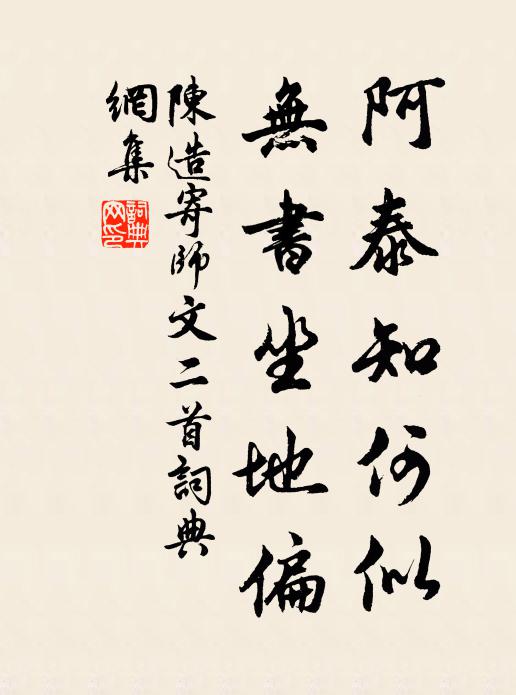 阿泰知何似
無書坐地偏
陳造寄師文二首詞典
網集
詞典網印